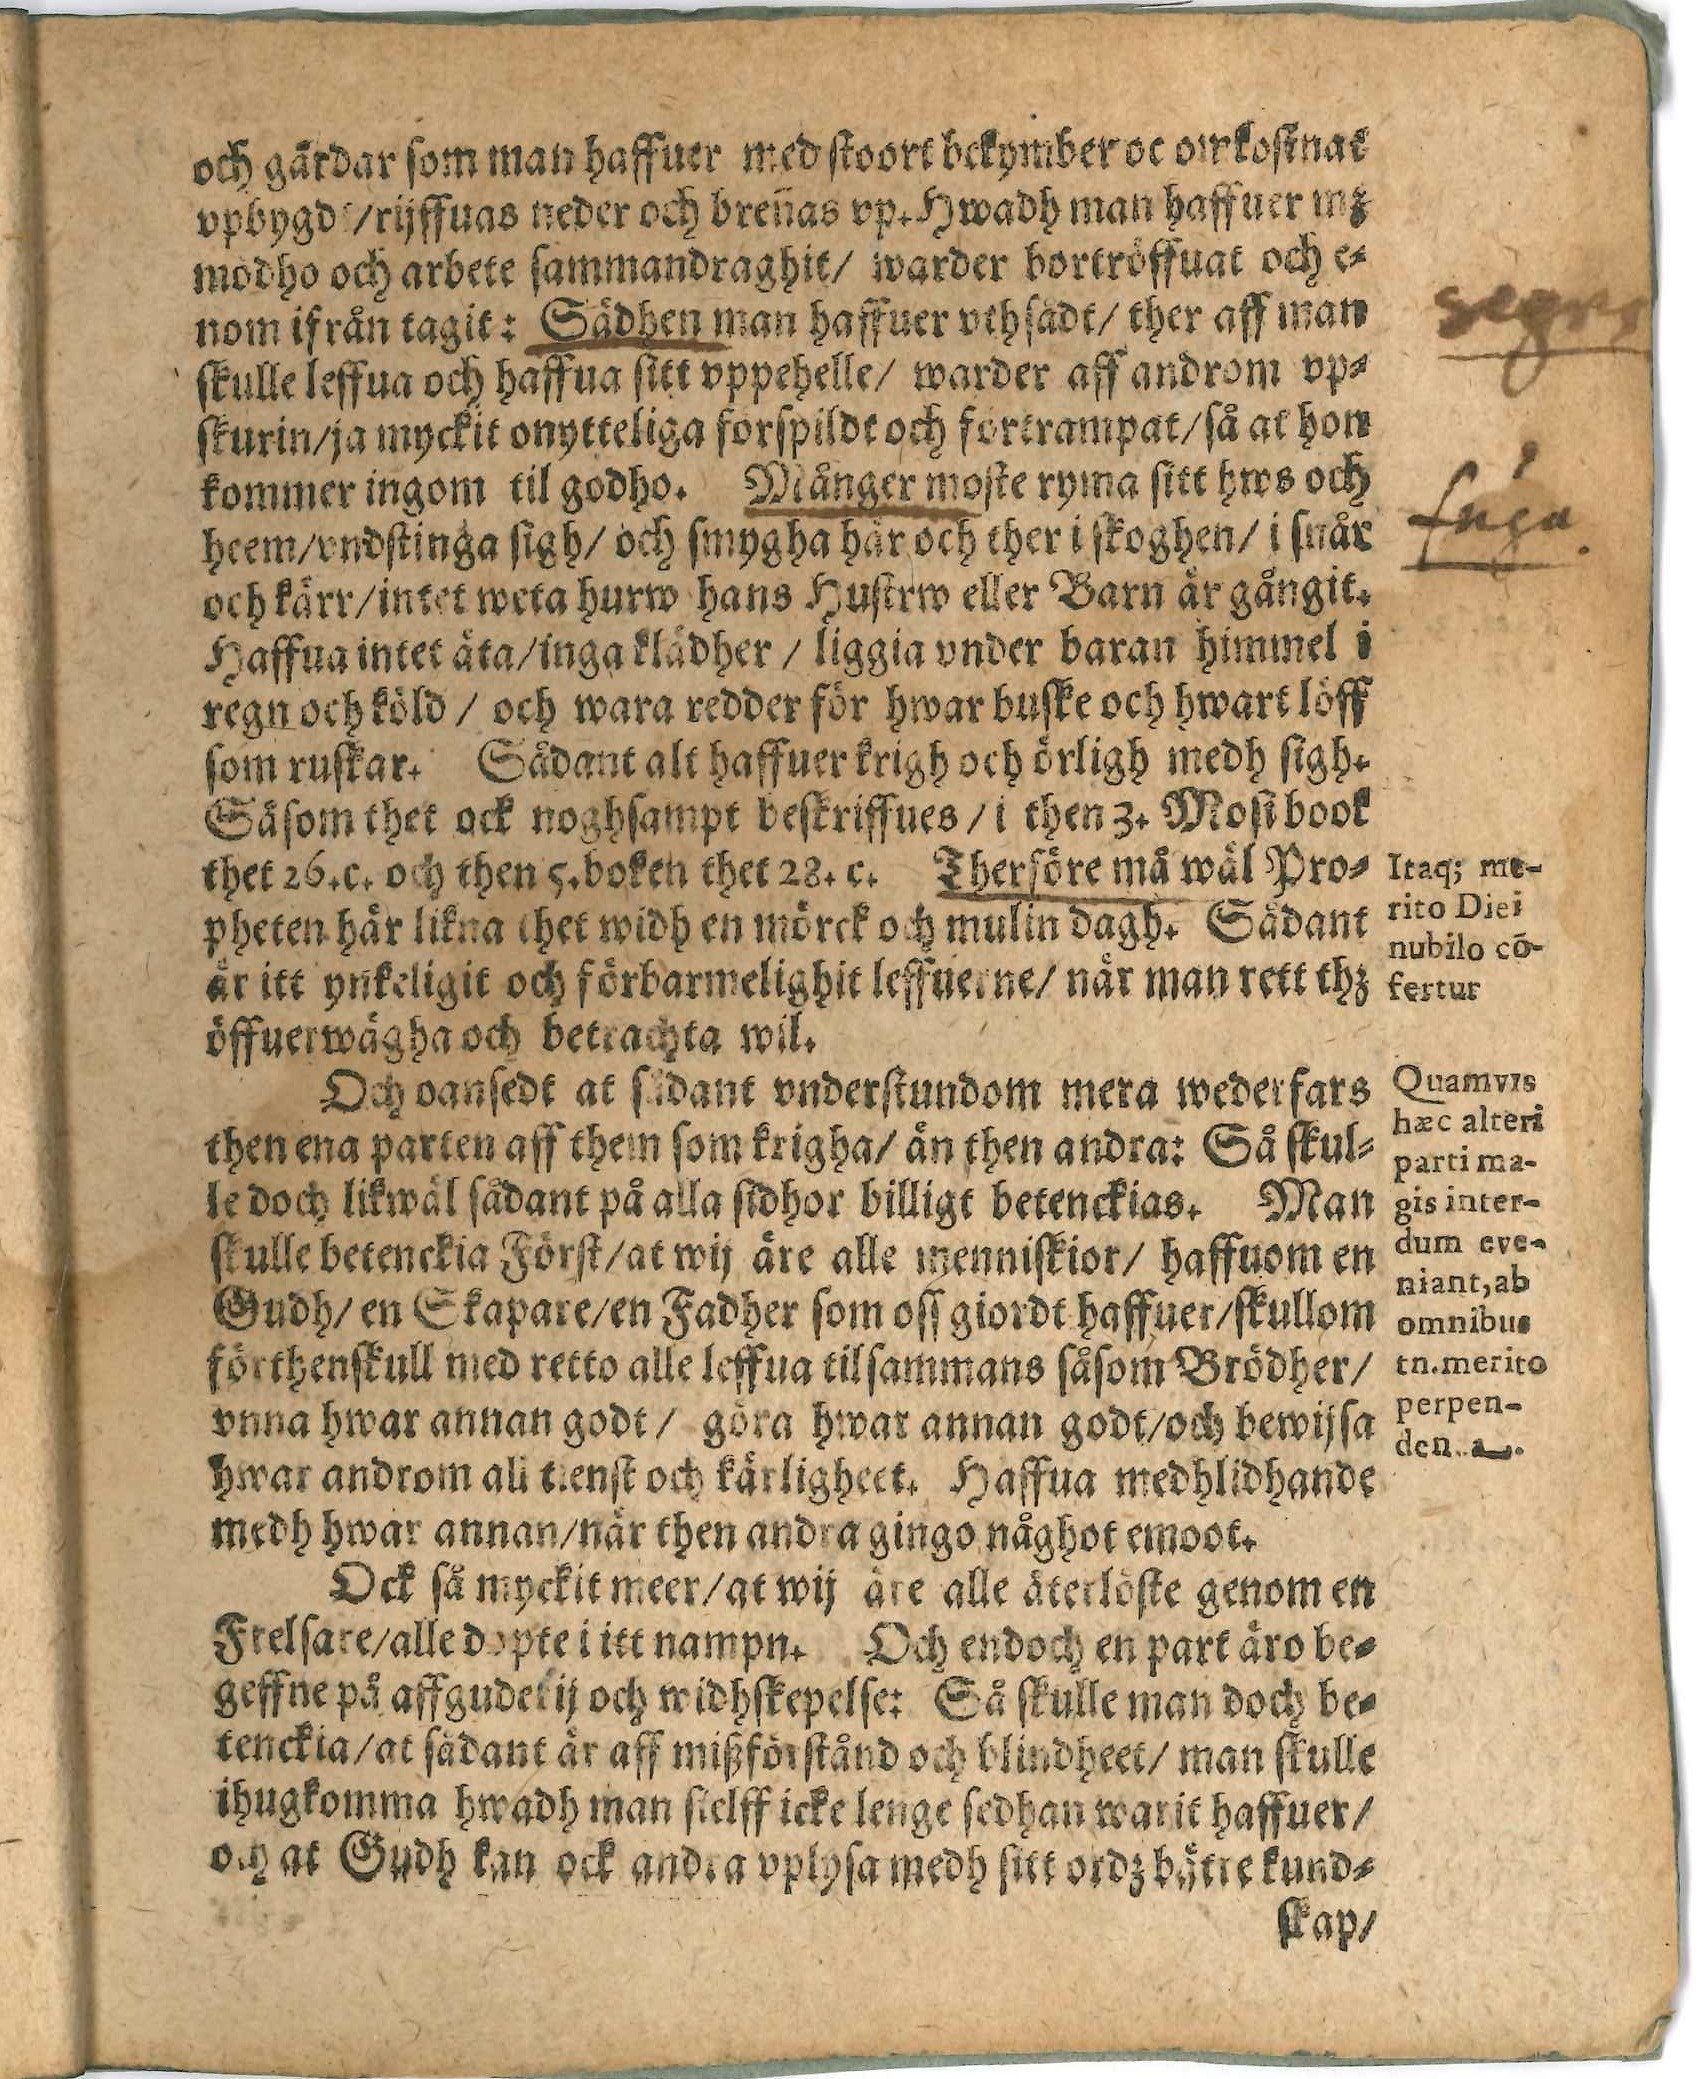 och gårdar som man haffuer med stoort bekymber oc omkostnat
vpbygdt/rijffuas neder och breñas vp. Hwadh man haffuer mz
mödho och arbete sammandraghit/ warder bortröffuat och e-
nom ifrån tagit: Sädhen man haffuer vthsådt/ ther aff man
skulle leffua och haffua sitt vppehelle/ warder aff androm vp-
skurin/ja myckit onytteliga förspildt och förtrampat/så at hon
kommer ingom til godho. Månger moste ryma sitt hws och
heem/vndstinga sigh/ och smygha här och ther i skoghen/ i snår
och kärr/intet weta hurw hans Hustrw eller Barn är gångit.
Haffua intet äta/inga klädher / liggia vnder baran himmel i
regn och köld / och wara redder för hwar buske och hwart löff
som ruskar. Sådant alt haffuer krigh och örligh medh sigh.
Såsom thet ock noghsampt beskriffues / i then 3. Mosi book
thet 26. c. och then 5. boken thet 28. c. Therföre må wäl Pro-
pheten här likna thet widh en mörck och mulin dagh. Sådant
är itt ynkeligit och förbarmelighit leffuerne/ när man rett thz
öffuerwägha och betrachta wil.
Och oansedt at sådant vnderstundom mera wederfars
then ena parten aff them som krigha/ än then andra: Så skul-
le doch likwäl sådant på alla sidhor billigt betenckias. Man
skulle betenckia Först/at wij äre alle menniskior/ haffuom en
Gudh/ en Skapare/en Fadher som oss giordt haffuer/skullom
förthenskull med retto alle leffua tilsammans såsom Brödher/
vnna hwar annan godt/ göra hwar annan godt/och bewijsa
hwar androm all tienst och kärligheet. Haffua medhlidhande
medh hwar annan/när then andra gingo någhot emoot.
Ock så myckit meer/at wij äre alle återlöste genom en
Frelsare/alle döpte i itt nampn. Och endoch en part äro be-
geffne på affguderij och widhskepelse: Så skulle man doch be-
tenckia/at sådant är aff mißförstånd och blindheet/ man skulle
ihugkomma hwadh man sielff icke lenge sedhan warit haffuer/
och at Gudh kan ock andra vplysa medh sitt ordz bätre kund-
skap/
Itaq; me-
rito Diei
nubilo cō-
fertur
Quamvis
hæc alteri
parti ma-
gis inter-
dum eve-
niant, ab
omnibus
tn. merito
perpen-